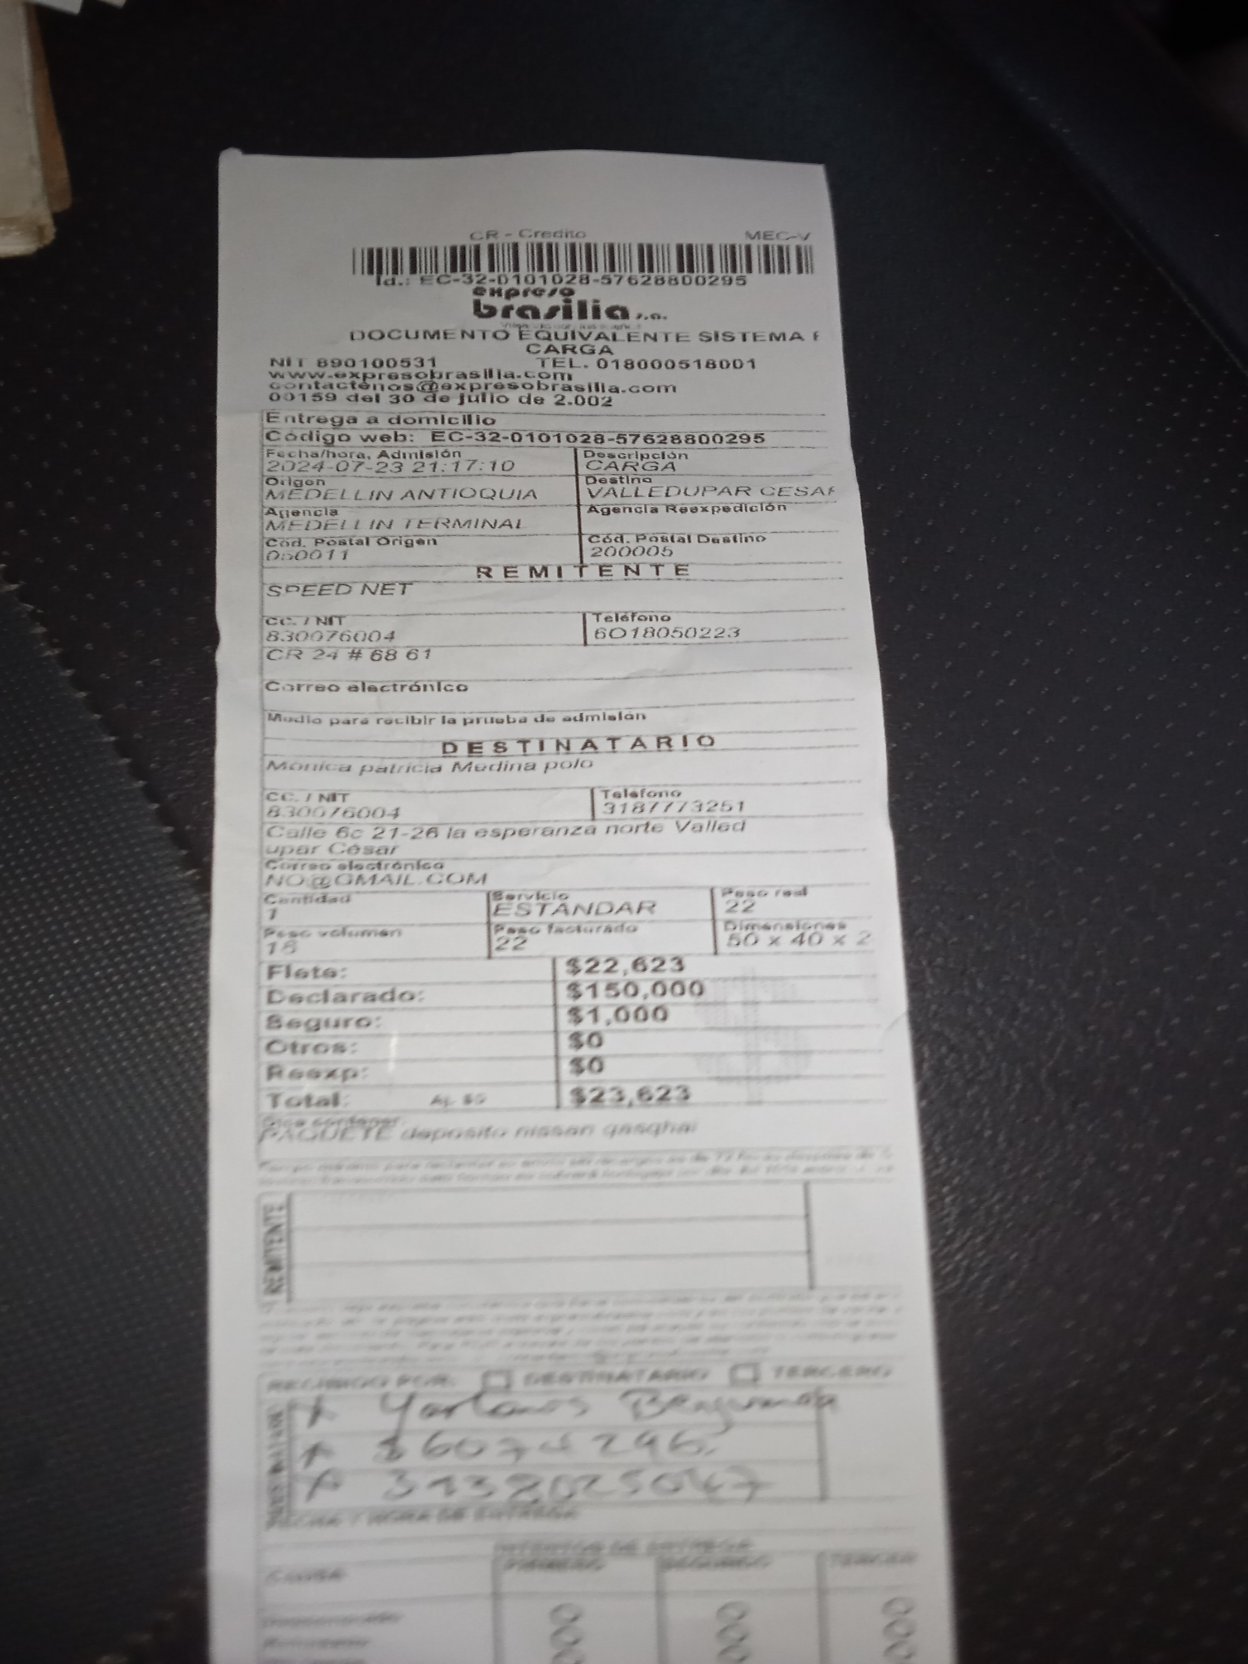 CR - Credito MEC-V
Id.: EC-32-0101028-57628800295
expreso
brasilia s.a.
DOCUMENTO EQUIVALENTE SISTEMA P
CARGA
NIT 890100531 TEL. 018000518001
www.expresobrasilia.com
contactenos@expresobrasilia.com
00159 del 30 de julio de 2.002
Entrega a domicilio
Código web: EC-32-0101028-57628800295
Fecha/hora, Admisión Descripción
2024-07-23 21:17:10 CARGA
Origen Destino
MEDELLIN ANTIOQUIA VALLEDUPAR CESAR
Agencia Agencia Reexpedición
MEDELLIN TERMINAL
Cód. Postal Origen Cód. Postal Destino
050011 200005
REMITENTE
SPEED NET
CC. / NIT Teléfono
830076004 6018050223
CR 24 # 68 61
Correo electrónico
Medio para recibir la prueba de admisión
DESTINATARIO
Mónica patricia Medina polo
CC. / NIT Teléfono
830076004 3187773251
Calle 6c 21-26 la esperanza norte Valled
upar César
Correo electrónico
NO@GMAIL.COM
Cantidad Servicio Peso real
1 ESTANDAR 22
Peso volumen Peso facturado Dimensiones
16 22 50 x 40 x 2
Flete: $22,623
Declarado: $150,000
Seguro: $1,000
Otros: $0
Reexp: $0
Total: Aj. $0 $23,623
Dice contener:
PAQUETE deposito nissan qasqhai
REMITENTE
RECIBIDO POR: DESTINATARIO TERCERO
DESTINATARIO
FECHA / HORA DE ENTREGA
INTENTOS DE ENTREGA
CAUSA PRIMERO SEGUNDO TERCER